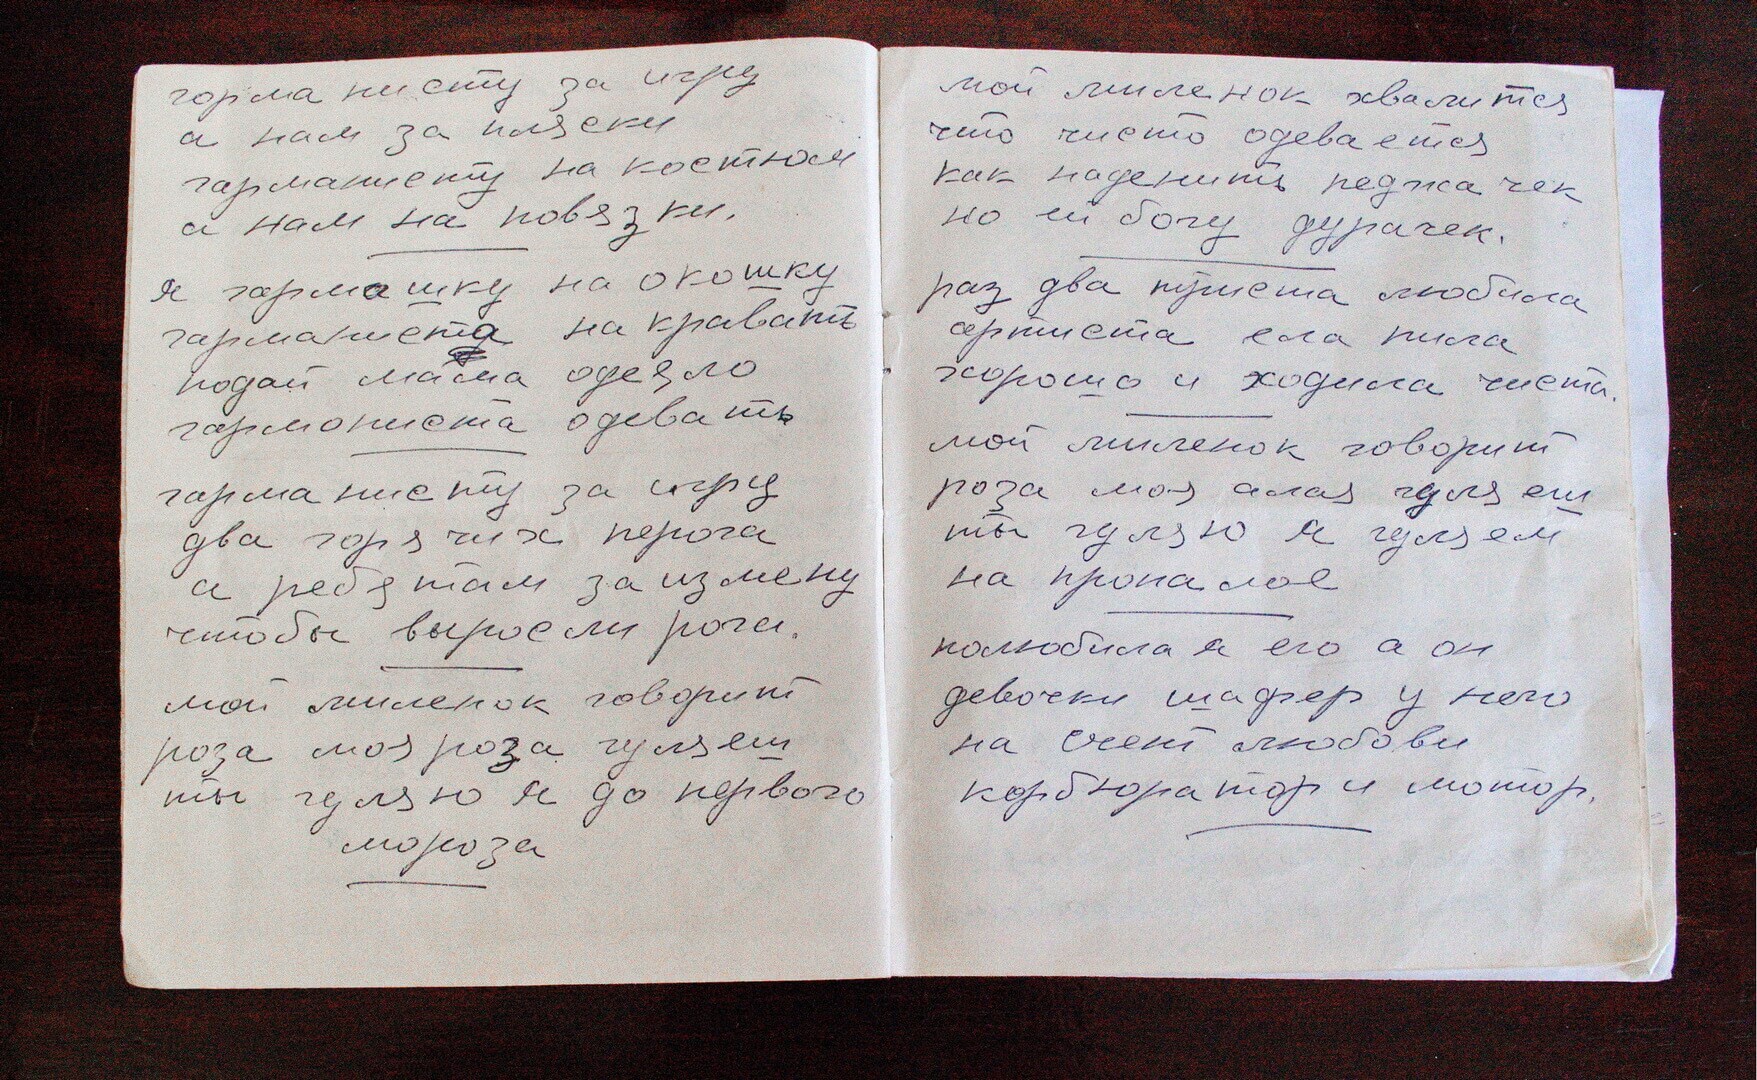 гормонисту за игру
а нам за пляски
гарманисту на костюм
а нам на повязки.
я гармошку на окошку
гарманиста на кравать
подай мама одеяло
гармониста одевать
гарманисту за игру
два горячих перога
а ребятам за измену
чтобы выросли рога.
мой миленок говорит
роза моя роза гуляеш
ты гуляю я до первого
мороза
мой миленок хвалится
что чисто одевается
как наденить педжачек
но ей богу дурачек.
раз два триста любила
артиста ела пила
хорошо и ходила чиста.
мой миленок говорит
роза моя алая гуляеш
ты гуляю я гуляем
на пропалое
полюбила я его а он
девочки шафер у него
на счет любови
корбюратор и мотор.